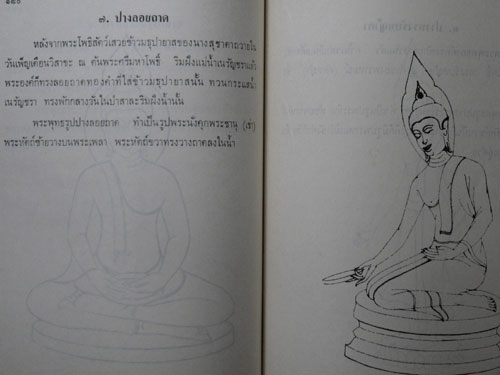 ๗. ปางลอยถาด
หลังจากพระโพธิสัตว์เสวยข้าวมธุปายาสของนางสุชาดาถวายใน
วันเพ็ญเดือนวิสาขะ ณ ต้นพระศรีมหาโพธิ์ ริมฝั่งแม่น้ำเนรัญชราแล้ว
พระองค์ก็ทรงลอยถาดทองคำที่ใส่ข้าวมธุปายาสนั้น ทวนกระแสน้ำ
เนรัญชรา ทรงพักกลางวันในป่าสาละริมฝั่งน้ำนั้น
พระพุทธรูปปางลอยถาด ทำเป็นรูปพระนั่งคุกพระชานุ (เข่า)
พระหัตถ์ซ้ายวางบนพระเพลา พระหัตถ์ขวาทรงวางถาดลงในน้ำ